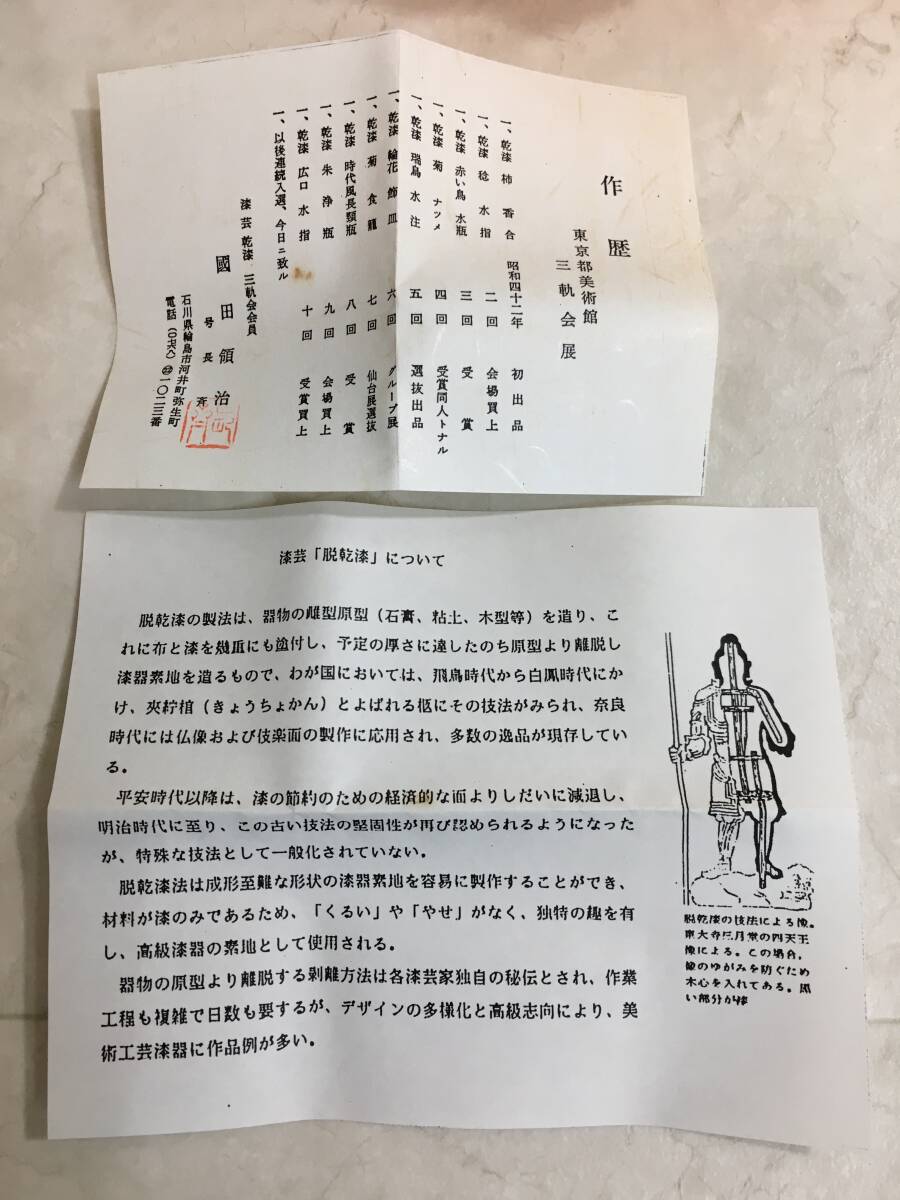 作歴
東京都美術館
三軌会展
一、乾漆 柿 香合 昭和四十二年 初出品
一、乾漆 稔 水指 二回 会場買上
一、乾漆 赤い鳥 水瓶 三回 受賞
一、乾漆 菊 ナツメ 四回 受賞同人トナル
一、乾漆 瑞鳥 水注 五回 選抜出品
一、乾漆 輪花 飾皿 六回 グループ展
一、乾漆 菊 食籠 七回 仙台展選抜
一、乾漆 時代風長頸瓶 八回 受賞
一、乾漆 朱 浄瓶 九回 会場買上
一、乾漆 広口 水指 十回 受賞買上
一、以後連続入選、今日ニ致ル
漆芸 乾漆 三軌会会員
國田領治
号 長斉
石川県輪島市河井町弥生町
電話(〇七六八)㉒一〇二三番
漆芸「脱乾漆」について
脱乾漆の製法は、器物の雌型原型(石膏、粘土、木型等)を造り、こ
れに布と漆を幾重にも塗付し、予定の厚さに達したのち原型より離脱し
漆器素地を造るもので、わが国においては、飛鳥時代から白鳳時代にか
け、夾紵棺(きょうちょかん)とよばれる柩にその技法がみられ、奈良
時代には仏像および伎楽面の製作に応用され、多数の逸品が現存してい
る。
平安時代以降は、漆の節約のための経済的な面よりしだいに減退し、
明治時代に至り、この古い技法の堅固性が再び認められるようになった
が、特殊な技法として一般化されていない。
脱乾漆法は成形至難な形状の漆器素地を容易に製作することができ、
材料が漆のみであるため、「くるい」や「やせ」がなく、独特の趣を有
し、高級漆器の素地として使用される。
器物の原型より離脱する剥離方法は各漆芸家独自の秘伝とされ、作業
工程も複雑で日数も要するが、デザインの多様化と高級志向により、美
術工芸漆器に作品例が多い。
脱乾漆の技法による像。
東大寺三月堂の四天王
像による。この場合、
像のゆがみを防ぐため
木心を入れてある。黒
い部分が漆